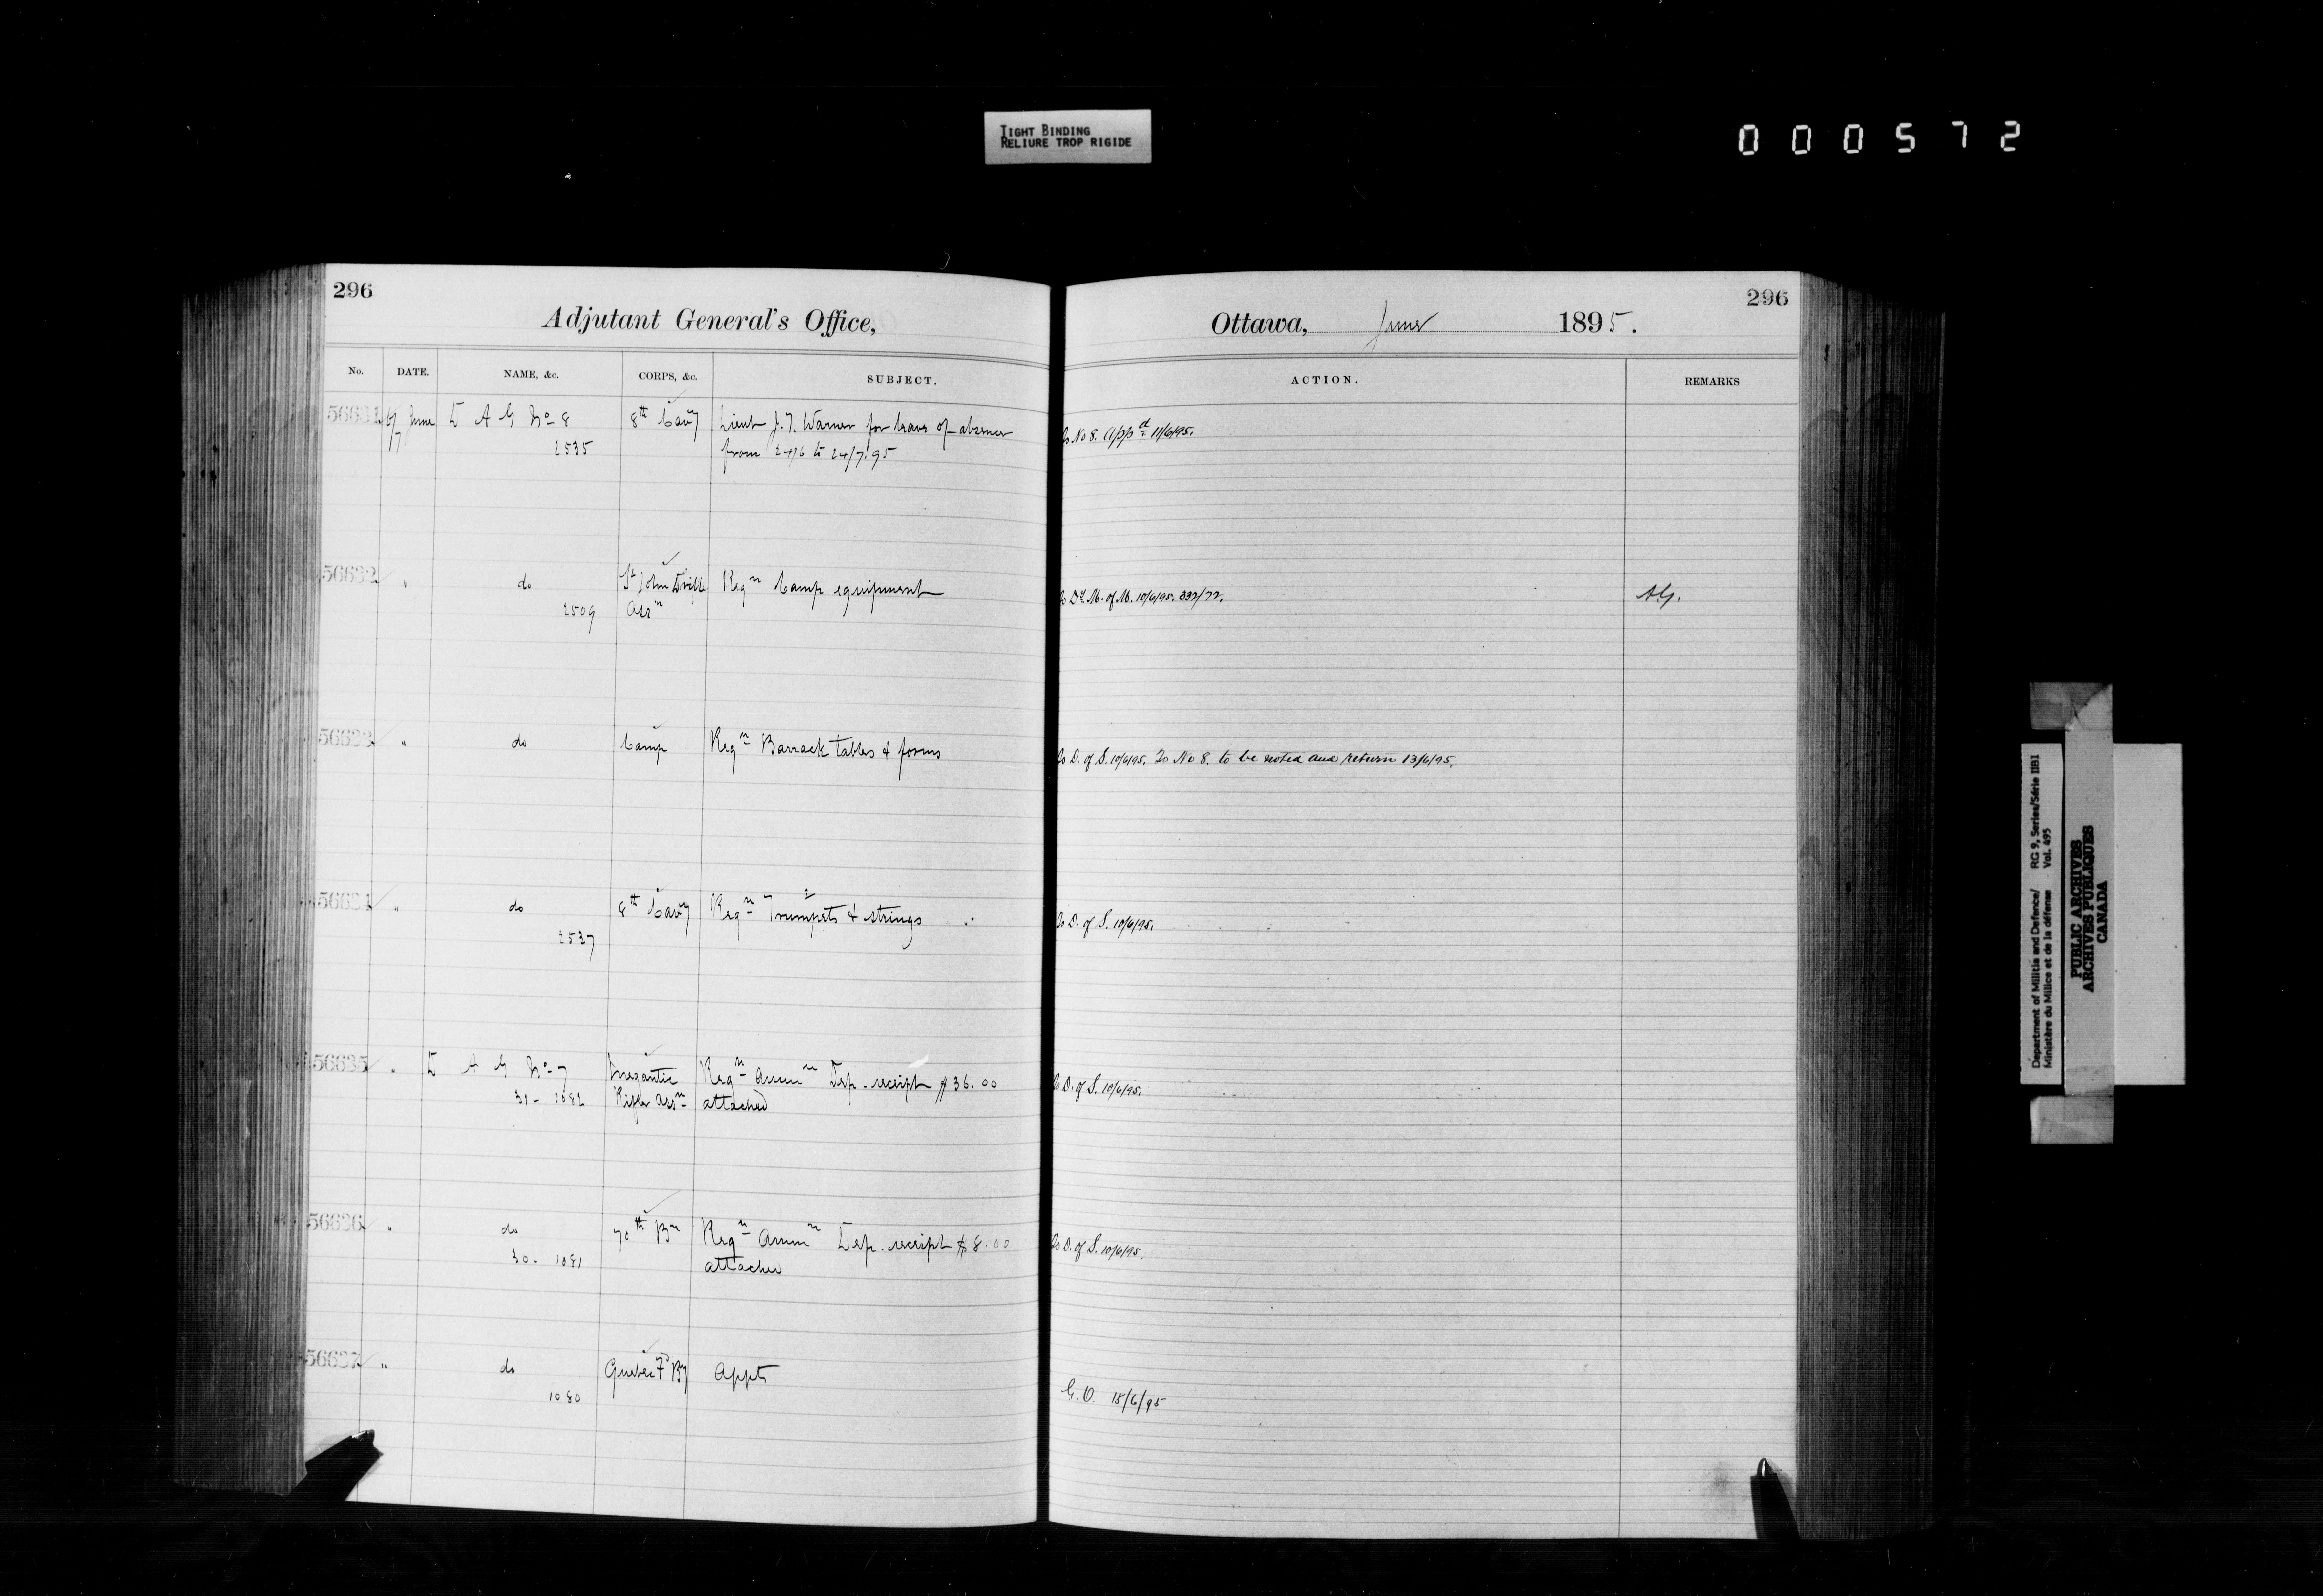 TIGHT BINDING
RELIURE TROP RIGIDE
000572
296
Adjutant General's Office,
No. DATE. NAME, &c. CORPS, &c. SUBJECT.
56631 6/7 June D A G No 8 8th Cavy Lieut J. T. Warner for leave of absence
2535 from 24/6 to 24/7.95
56632 " do St John Rifle Reqn Camp equipment
2509 Assn
56633 " do Camp Reqn Barrack tables & forms
2
56634 " do 8th Cavy Reqn Trumpets & strings
2537
56635 " D A G No 7 Megantic Reqn Ammn Dep. receipt $36.00
31 - 1082 Rifle Assn attached
56636 " do 70th Bn Reqn Ammn Dep. receipt $8.00
30 - 1081 attached
56637 " do Quebec Fd By Appts
1080
296
Ottawa, June 1895.
ACTION. REMARKS
To No 8. Appd 11/6/95.
To D. M. of M. 10/6/95. 332/72. AG.
To D. of S. 10/6/95. To No 8. to be noted and return 13/6/95.
To D. of S. 10/6/95.
To D. of S. 10/6/95.
To D. of S. 10/6/95.
G.O. 15/6/95
Department of Militia and Defence/ RG 9, Series/Série IIB1
Ministère du Milice et de la défense Vol. 495
PUBLIC ARCHIVES
ARCHIVES PUBLIQUES
CANADA